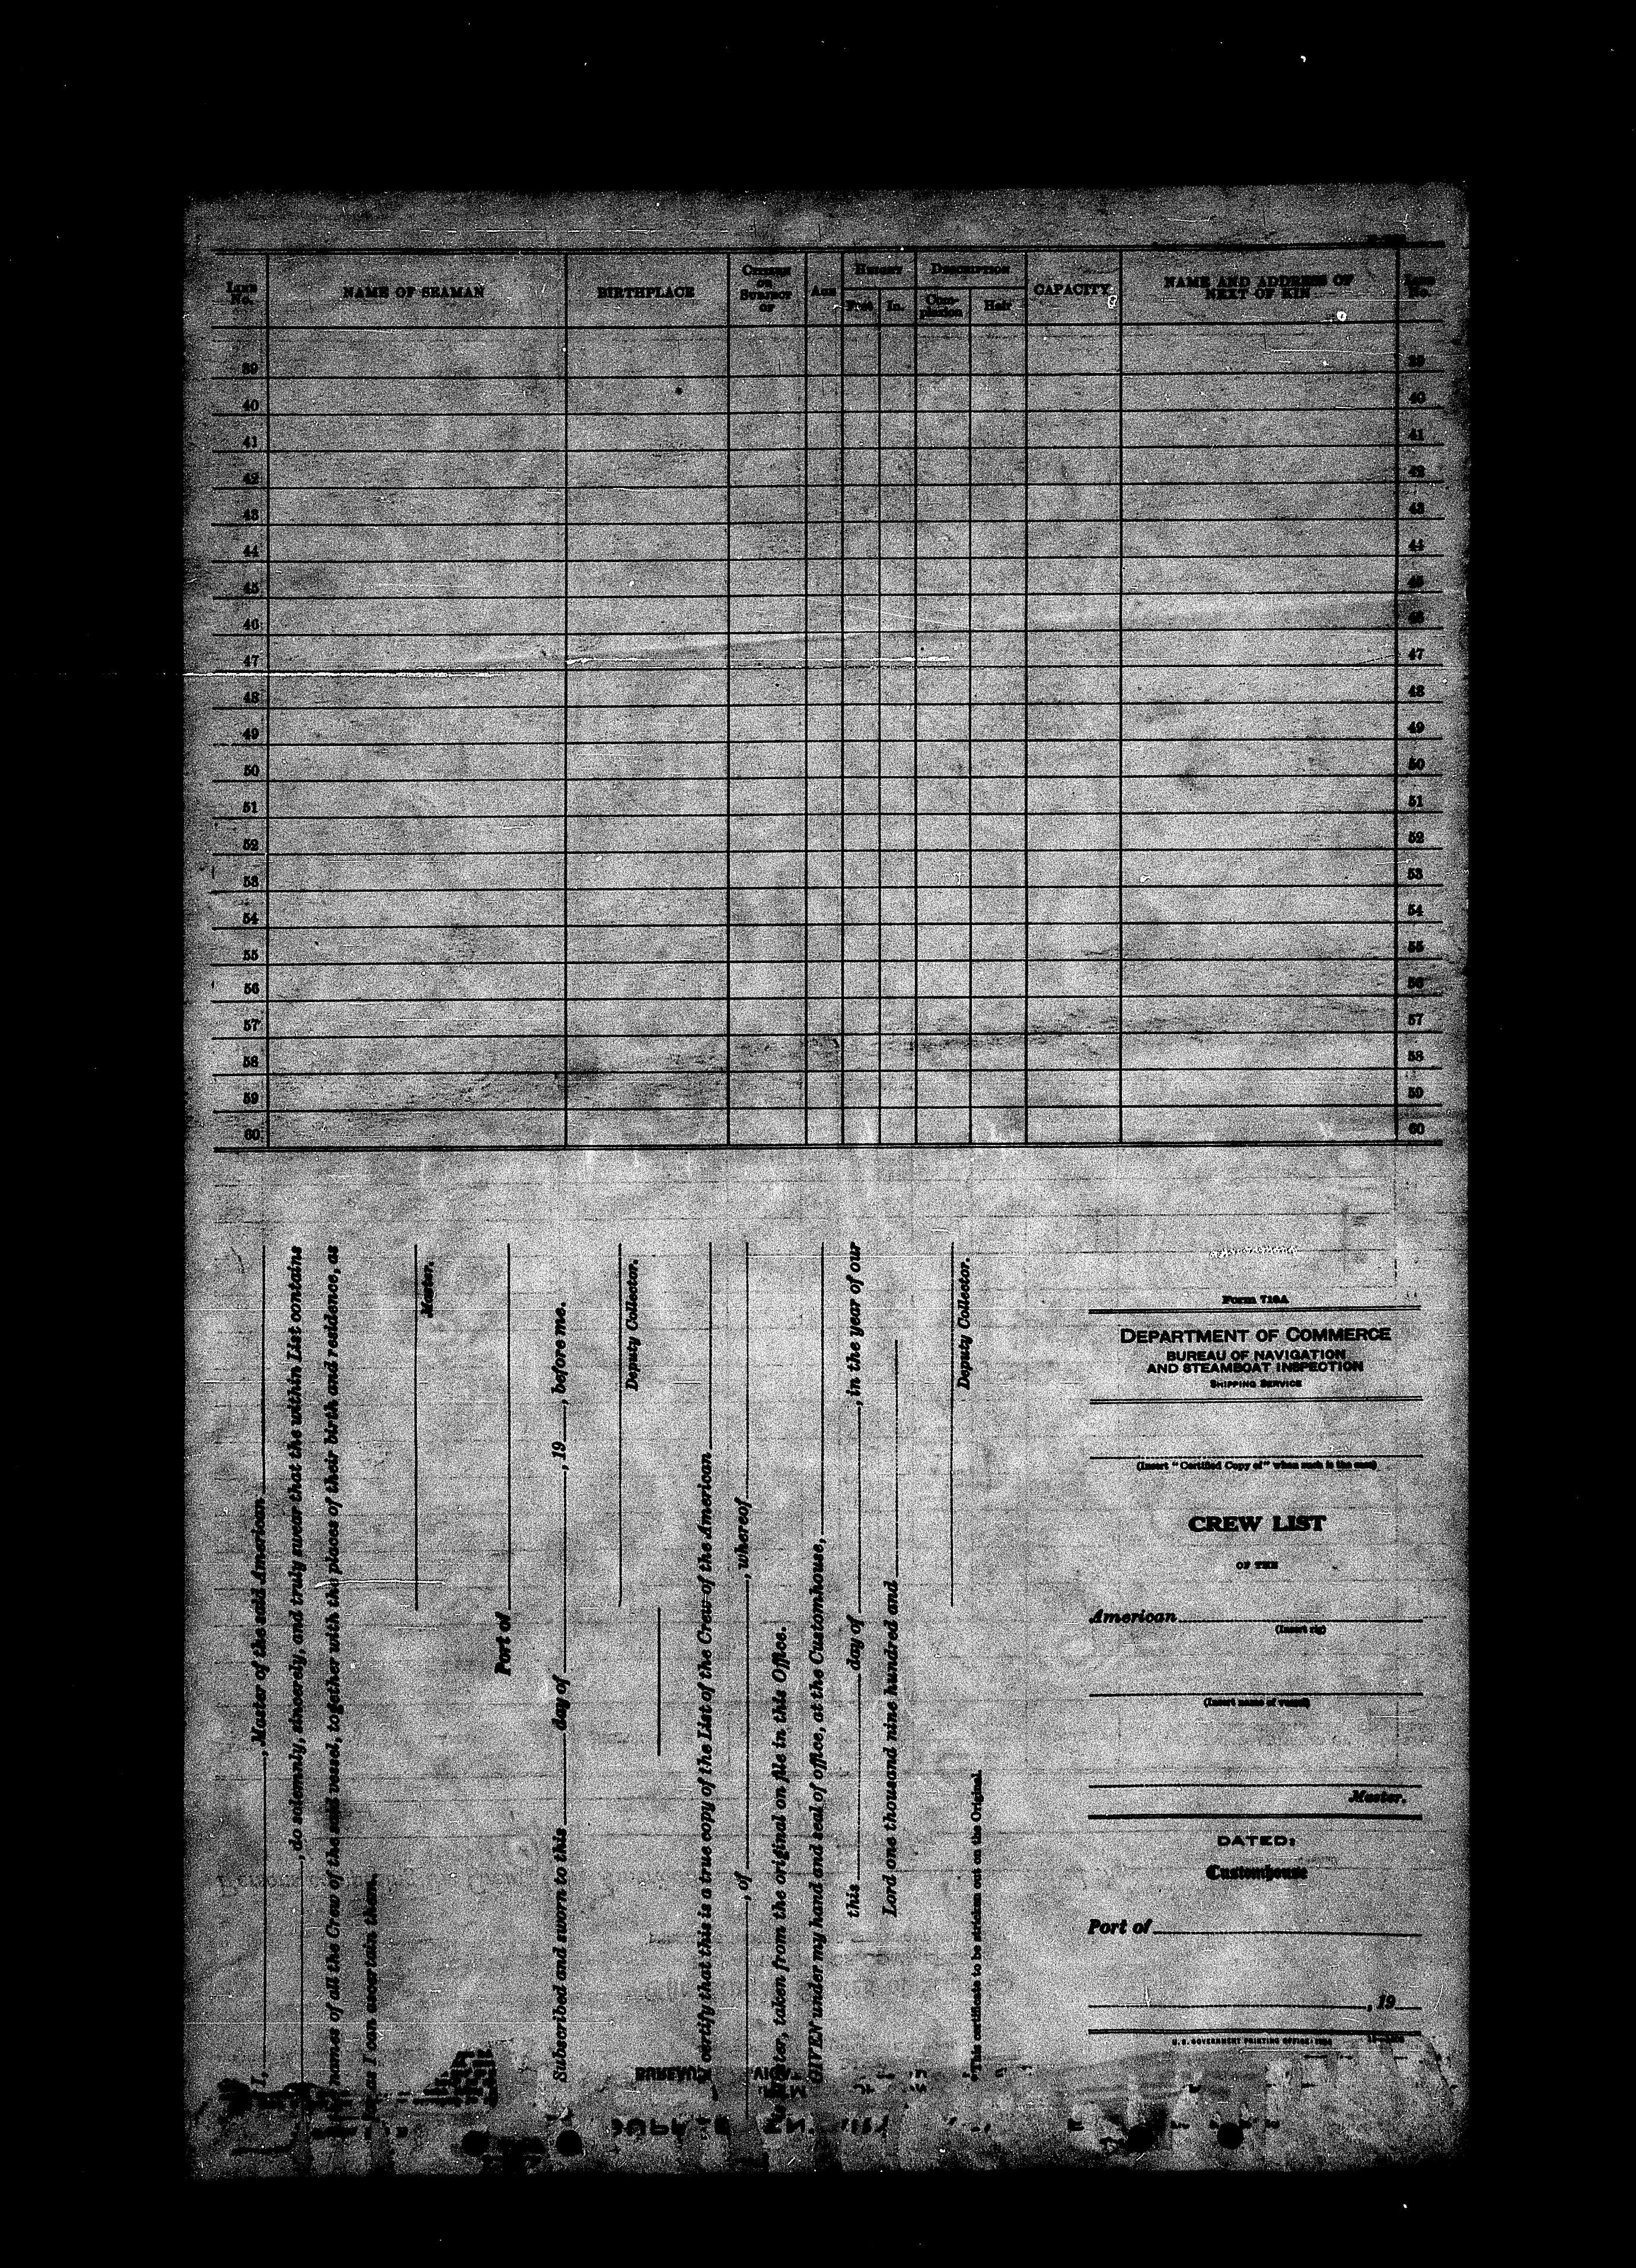 LINE No. NAME OF SEAMAN BIRTHPLACE CITIZEN OR SUBJECT OF AGE HEIGHT Feet In. DESCRIPTION Complexion Hair CAPACITY NAME AND ADDRESS OF NEXT OF KIN LINE No.
39 39
40 40
41 41
42 42
43 43
44 44
45 45
46 46
47 47
48 48
49 49
50 50
51 51
52 52
53 53
54 54
55 55
56 56
57 57
58 58
59 59
60 60
I, , Master of the said American
, do solemnly, sincerely, and truly swear that the within List contains
names of all the Crew of the said vessel, together with the places of their birth and residence, as
as I can ascertain them.
Master.
Port of
Subscribed and sworn to this day of , 19 , before me.
Deputy Collector.
I certify that this is a true copy of the List of the Crew of the American
, of , whereof
Master, taken from the original on file in this Office.
GIVEN under my hand and seal of office, at the Customhouse,
this day of , in the year of our
Lord one thousand nine hundred and
Deputy Collector.
*This certificate to be stricken out on the Original.
Form 710A
DEPARTMENT OF COMMERCE
BUREAU OF NAVIGATION
AND STEAMBOAT INSPECTION
SHIPPING SERVICE
(Insert "Certified Copy of" when such is the case)
CREW LIST
OF THE
American
(Insert rig)
(Insert name of vessel)
Master.
DATED:
Customhouse
Port of
, 19
U. S. GOVERNMENT PRINTING OFFICE